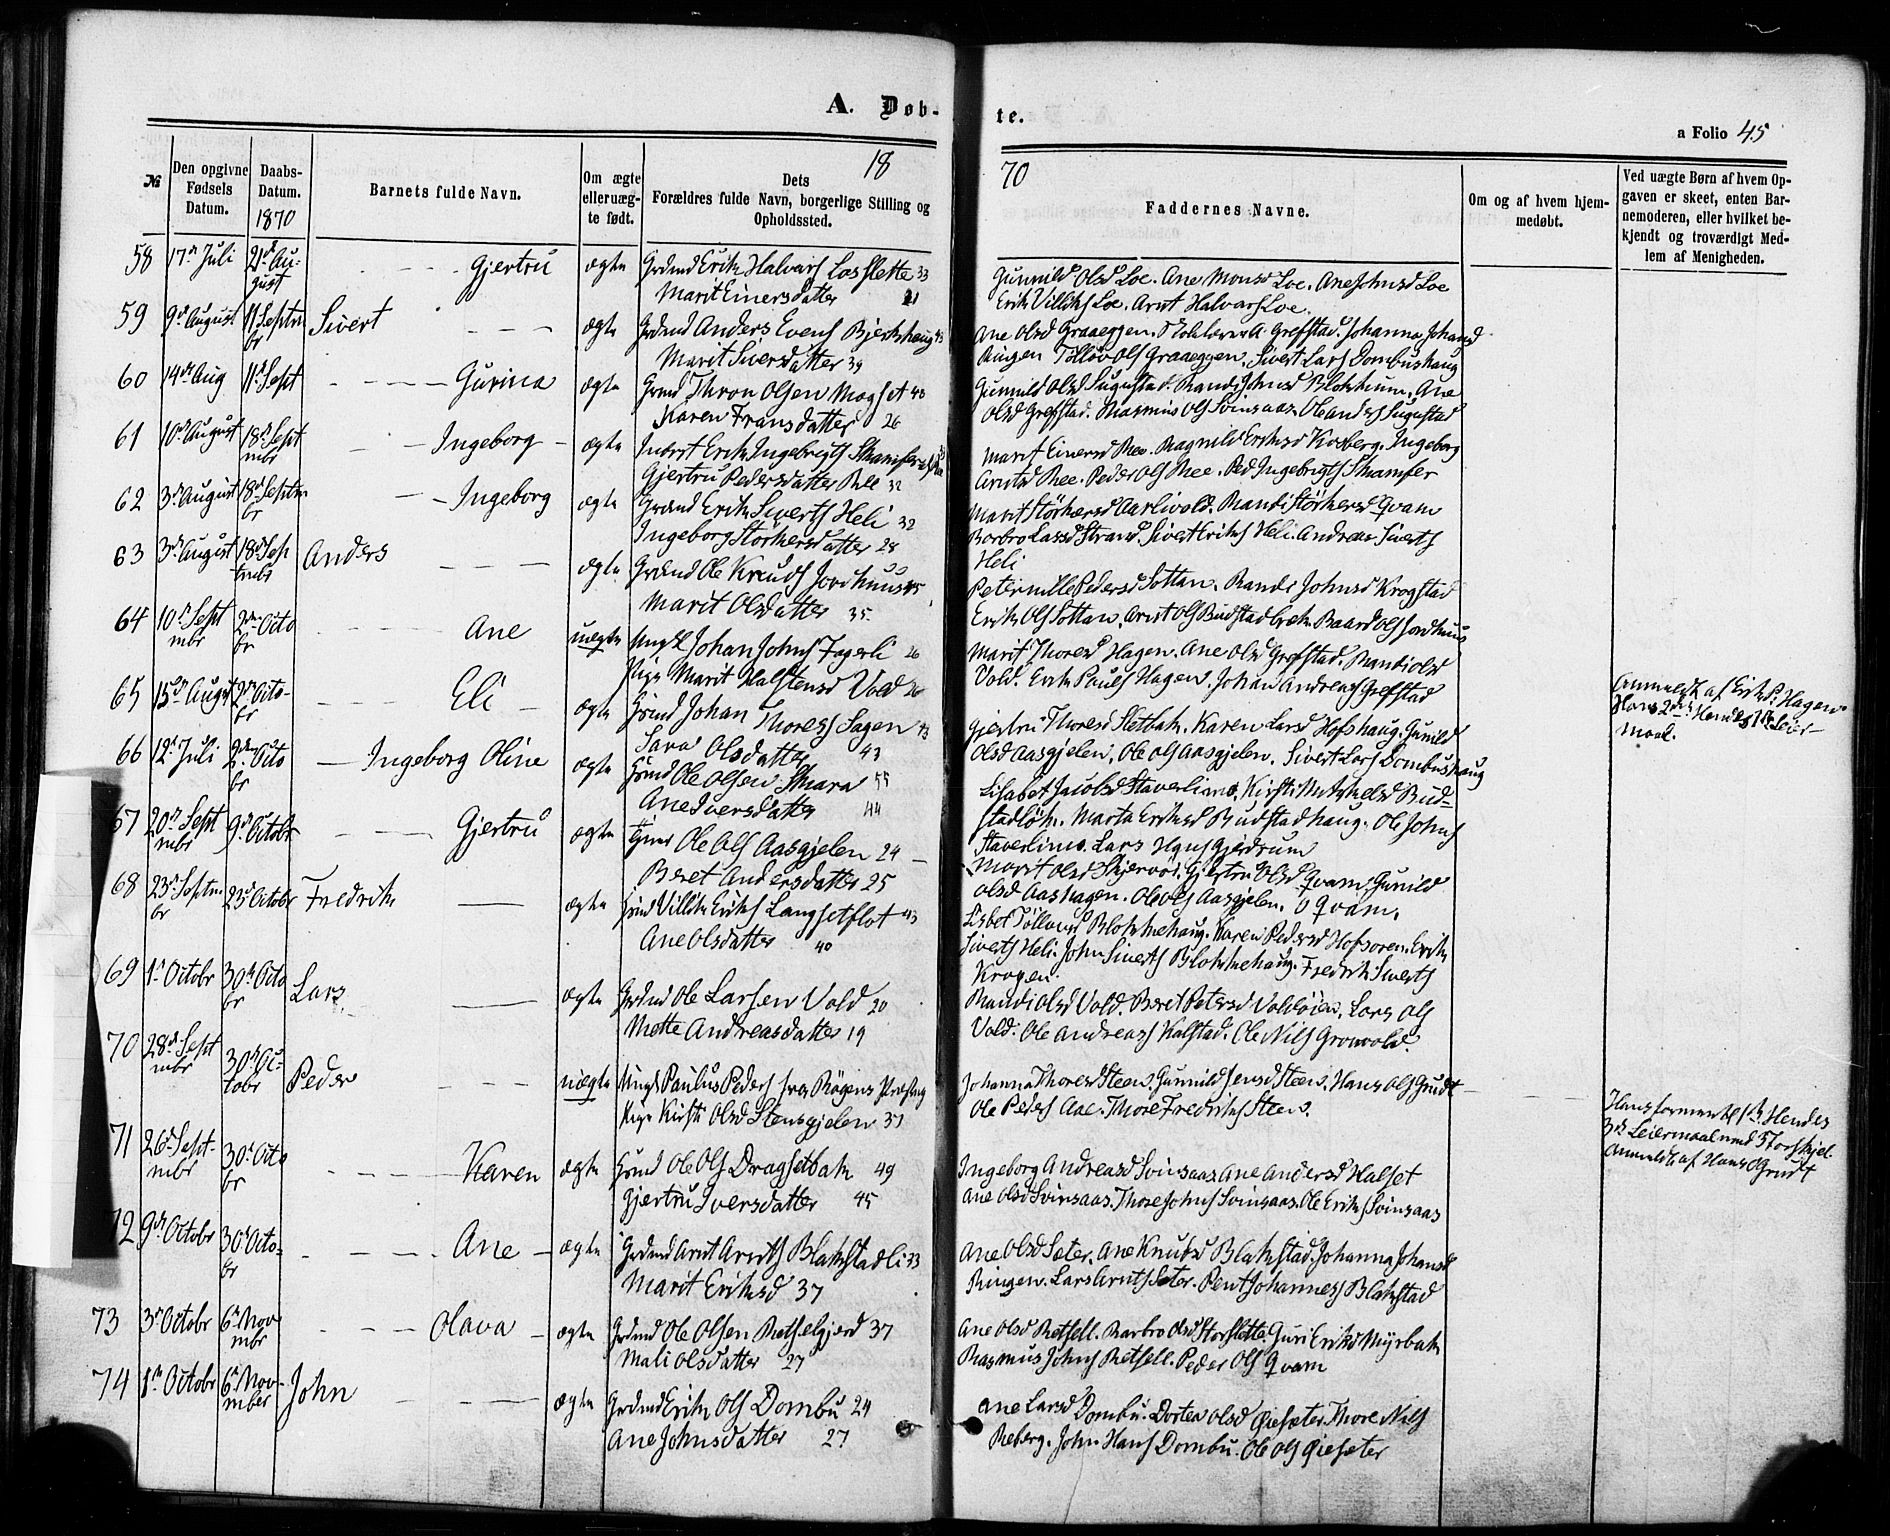 A. Døb-
te.
a Folio 45
18
70
№
Den opgivne Fødsels Datum.
Daabs-Datum. 1870
Barnets fulde Navn.
Om ægte eller uæg-te født.
Dets Forældres fulde Navn, borgerlige Stilling og Opholdssted.
Faddernes Navne.
Om og af hvem hjem-medøbt.
Ved uægte Børn af hvem Op-gaven er skeet, enten Bar-nemoderen, eller hvilket be-kjendt og troværdigt Med-lem af Menigheden.
58 17de Juli 21de Au-gust Gjertru ægte Grdmd Erik Halvars Losslette 33
Marit Einersdatter
Gunnild Olsd Loe. Ane Monsd Loe. Ane Johnsd Loe
Erik Villiks Loe. Arnt Halvars Loe.
59 9de August 11 Septmbr Sivert ægte Grdmd Anders Evens Bjerkhaug 43
Marit Siversdatter 39
Ane Olsd Graaeggen. A. Grefstad. Johanna Johansd
Ringen Tølløv Ols Graaeggen. Sivert Lars Dombushaug
60 14de Aug 11te Sept Gurina ægte Grmd Thron Olsen Mogset 40
Karen Fransdatter 26
Gunnild Olsd Sugustad. Randi Johnsd Blokkum. Ane
Olsd Grefstad. Rasmus Ols Svinsaas. Ole Anders Sugustad
61 10de August 18de Septmbr Ingeborg ægte Inderst Erik Ingebrigts Skamfer
Gjertru Pedersdatter Ree 32
Marit Einersd Ree. Ragnild Eriksd Kosberg. Ingeborg
Arntsd Ree. Peder Ols Ree. Ped Ingebrigts Skamfer
62 3de August 18de Septmbr Ingeborg ægte Grdmd Erik Siverts Heli 32
Ingeborg Størkersdatter 28
Marit Størkersd Aarlivold. Randi Størkersd Qvam
Barbro Larsd Strand. Sivert Eriks Heli. Andreas Siverts
Heli
63 3de August 18de Septmbr Anders ægte Grdmd Ole Knuds Jordhuus 45
Marit Olsdatter 35
Peternille Pedersd Sottan. Randi Johnsd Krogstad
Erik Ols Sottan. Arnt Ols Budstadbrek. Baard Ols Jordhuus
64 10de Septmbr 2den Octobr Ane uægte Ungk Johan Johns Fagerli 26
Pige Marit Halstensd Vold 26
Marit Thoresd Hagen. Ane Olsd Grefstad. Randi Olsd
Vold. Erik Pauls Hagen. Johan Andreas Grefstad
Anmeldt af Erik P. Hagen
Hans 2det Hendes 1ste Leier-
maal.
65 15de August 2den Octobr Eli ægte Grmd Johan Thoress Sagen 43
Sara Olsdatter 43
Gjertru Thoresd Sletbak. Karen Larsd Hofshaug. Gunild
Olsd Aasgjelen. Ole Ols Aasgjelen. Sivert Lars Dombushaug
66 12te Juli 2den Octobr Ingeborg Oline ægte Grmd Ole Olsen Skara 55
Ane Iversdatter 44
Lisabet Jacobsd Staverlimo. Kirsti Mikkelsd Bud-
stadløk. Marta Eriksd Budstadhaug. Ole Johns
Staverlimo. Lars Hans Gjerdrum
67 20de Septmbr 9de Octobr Gjertru ægte Ole Ols Aasgjelen 24
Beret Andersdatter 25
Marit Olsd Skjervø. Gjertru Olsd Qvam. Gunild
Olsd Aashagen. Ole Ols Aasgjelen. O Qvam.
68 23de Septmbr 23de Octobr Fredrik ægte Grmd Villik Eriks Langsetflot 43
Ane Olsdatter 40
Lisbet Tøllovsd Blokkhaug. Karen Pedersd Hofsoren. Erik
Siverts Heli. John Siverts Blokkhaug. Fredrik Siverts
Krogen
69 1ste Octobr 30te Octobr Lars ægte Grdmd Ole Larsen Vold 20
Mette Andreasdatter 19
Randi Olsd Vold. Beret Petersd Voldløien. Lars Ols
Vold. Ole Andreas Kalstad. Ole Nils Gronvold.
70 28de Septmbr 30te Octobr Peder uægte Ungk Paulus Peders fra Bøgens Præsteg
Pige Kirsti Olsd Stensgjelen 37
Johanna Thoresd Steen. Gunnild Jensd Steen. Hans Ols Grudt
Ole Peders Aae. Thore Fredriks Steen.
Hans formentl 1ste Hendes
3de Leiermaal med 3 forskjel.
Anmeldt af Hans O Grudt
71 26de Septmbr 30te Octobr Karen ægte Grmd Ole Ols Dragsetbak 49
Gjertru Iversdatter 45
Ingeborg Andreasd Svinsaas. Ane Andersd Halset
Ane Olsd Svinsaas. Thore Johns Svinsaas. Ole Eriks Svinsaas
72 9de Octobr 30te Octobr Ane ægte Grdmd Arnt Arnts Blakstadli 33
Marit Eriksd 37
Ane Olsd Sæter. Ane Knudsd Blakstad. Johanna Johansd
Ringen. Lars Arnts Sæter. Pent Johanness Blakstad
73 3de Octobr 6te Novmbr Olava ægte Grdmd Ole Olsen Retselgjerd 37
Mali Olsdatter 27
Ane Olsd Retsell. Barbro Olsd Storslette. Guri Eriksd Myrbak
Rasmus Johns Retsell. Peder Ols Qvam
74 1ste Octobr 6te November John ægte Grdmd Erik Ols Dombu 24
Ane Johnsdatter 27
Ane Larsd Dombu. Dortea Olsd Øiesæter. Thore Nils
Reberg. John Hans Dombu. Ole Ols Øiesæter